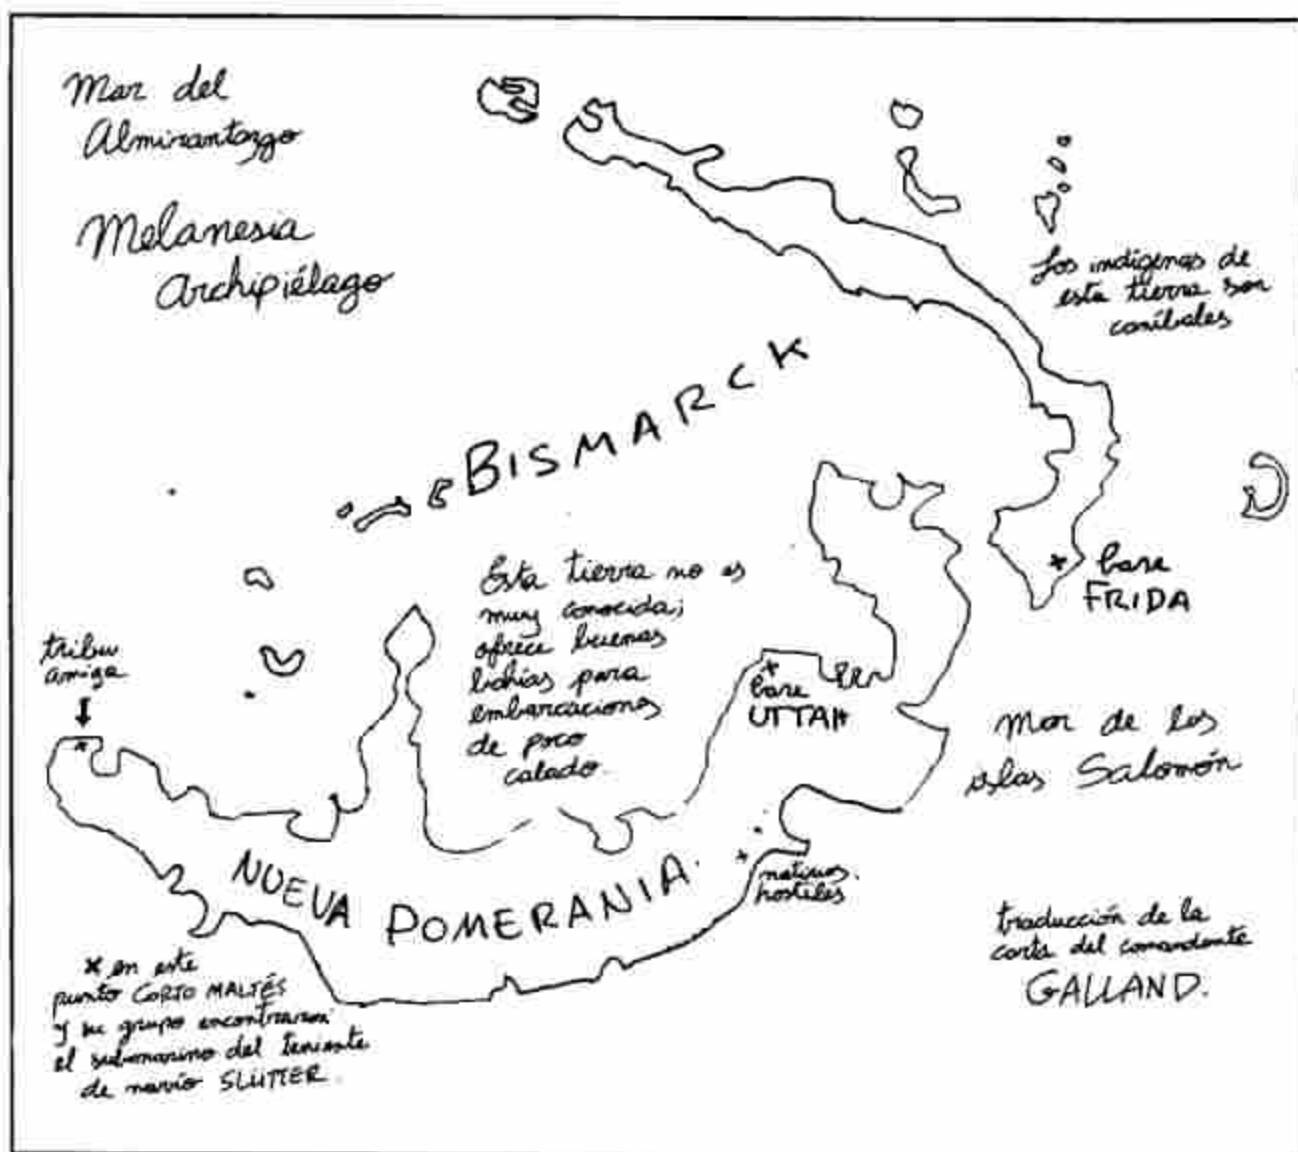 Mar del
Almirantazgo
Melanesia
Archipiélago
los indígenas de
esta tierra son
caníbales
BISMARCK
Esta tierra no es
muy conocida;
ofrece buenas
bahías para
embarcaciones
de poco
calado.
base
FRIDA
tribu
amiga
base
UTTAH
Mar de las
islas Salomón
NUEVA POMERANIA
nativos
hostiles
traducción de la
carta del comandante
GALLAND.
x en este
punto CORTO MALTÉS
y su grupo encontraron
el submarino del teniente
de navío SLÜTTER.